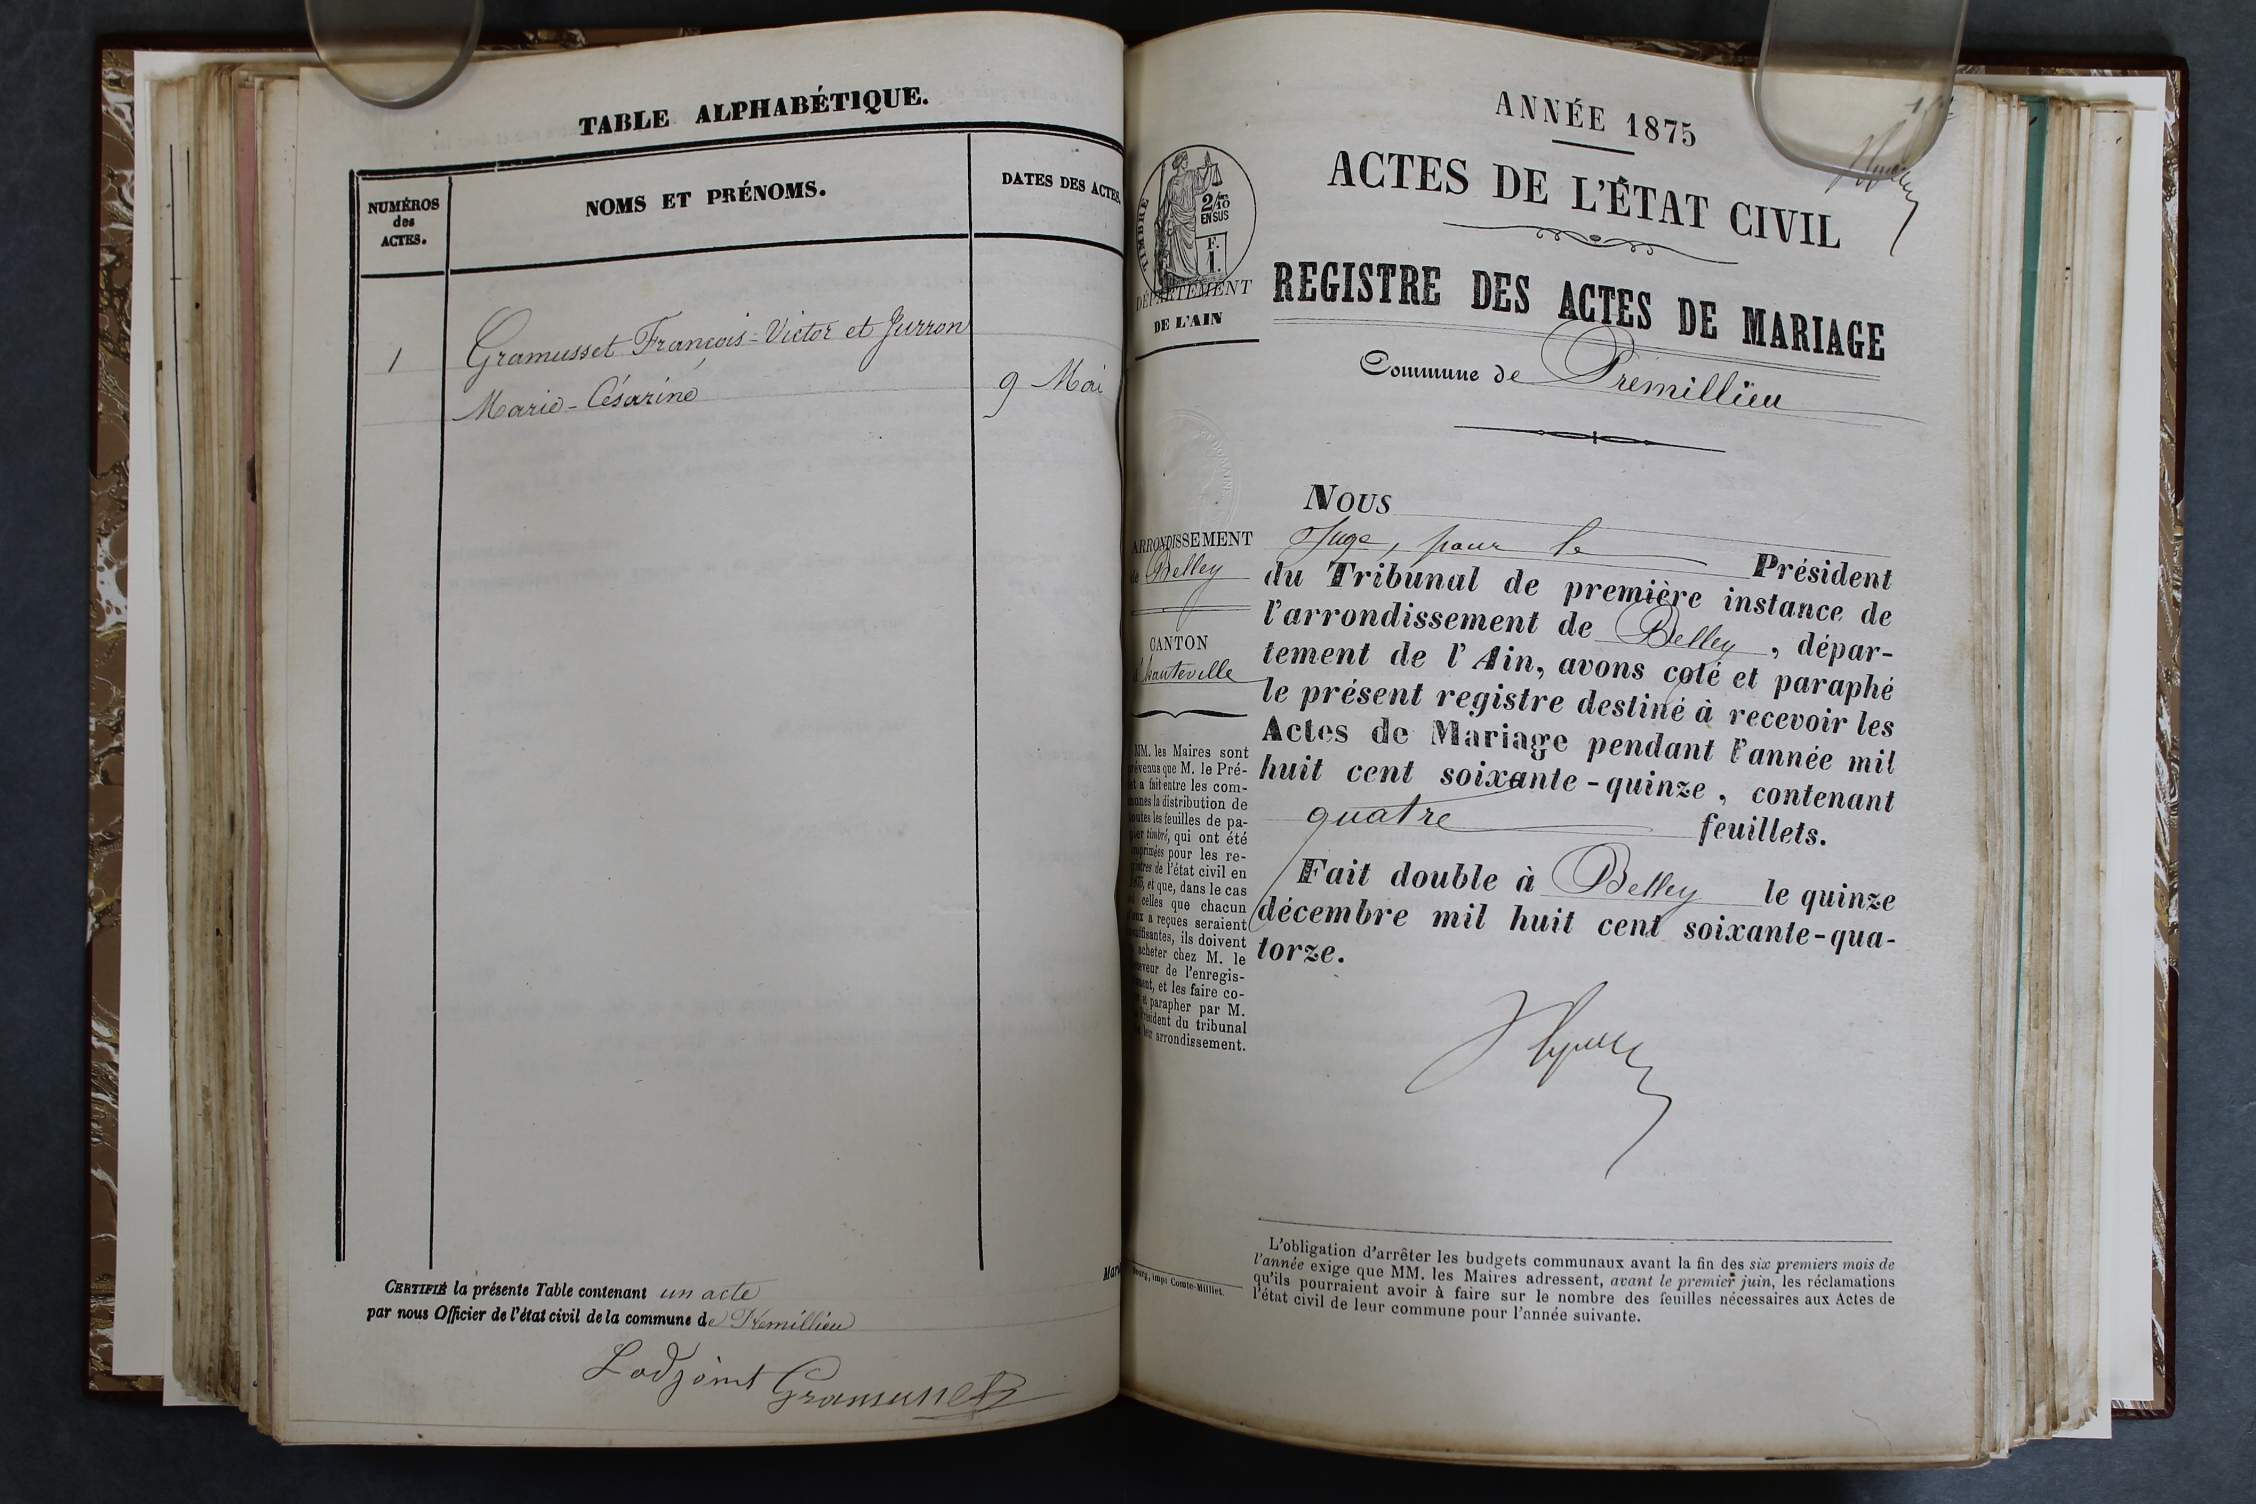 TABLE ALPHABÉTIQUE.
NUMÉROS
des
ACTES.
NOMS ET PRÉNOMS.
DATES DES ACTES.
1
Gramusset François-Victor et Jurron
Marie-Césarine
9 Mai
CERTIFIÉ la présente Table contenant un acte
par nous Officier de l'état civil de la commune de Prémillieu
Ladjoint Gramusset
ANNÉE 1875
ACTES DE L'ÉTAT CIVIL
REGISTRE DES ACTES DE MARIAGE
Commune de Prémillieu
TIMBRE
2/10
EN SUS
F.
1.
DÉPARTEMENT
DE L'AIN
ARRONDISSEMENT
de Belley
CANTON
d'hauteville
MM. les Maires sont
prévenus que M. le Pré-
fet a fait entre les com-
munes la distribution de
toutes les feuilles de pa-
pier timbré, qui ont été
imprimées pour les re-
gistres de l'état civil en
1875, et que, dans le cas
où celles que chacun
d'eux a reçues seraient
insuffisantes, ils doivent
en acheter chez M. le
receveur de l'enregis-
trement, et les faire co-
ter et parapher par M.
le Président du tribunal
de leur arrondissement.
Bourg, imp. Comte-Milliet.
NOUS
Juge, pour le Président
du Tribunal de première instance de
l'arrondissement de Belley, dépar-
tement de l'Ain, avons coté et paraphé
le présent registre destiné à recevoir les
Actes de Mariage pendant l'année mil
huit cent soixante-quinze, contenant
quatre feuillets.
Fait double à Belley le quinze
décembre mil huit cent soixante-qua-
torze.
L'obligation d'arrêter les budgets communaux avant la fin des six premiers mois de
l'année exige que MM. les Maires adressent, avant le premier juin, les réclamations
qu'ils pourraient avoir à faire sur le nombre des feuilles nécessaires aux Actes de
l'état civil de leur commune pour l'année suivante.